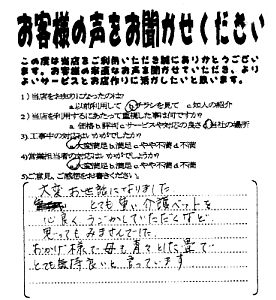 お客様の声をお聞かせください
この度は当店をご利用いただき誠にありがとうござい
ます。お客様の率直なお声を聞かせていただき、より
よいサービスとお店作りに活かしたいと思います。
1)当店をお知りになったのは?
a以前利用して bチラシを見て c知人の紹介
2)当店を利用するにあたって重視した事は何ですか?
a 価格 b評判 cサービスや対応の良さ d当社の場所
3)工事中の対応はいかがでしたか?
a大変満足 b満足 cやや不満 d不満
4)営業担当者の対応はいかがでしたか?
a大変満足 b満足 cやや不満 d不満
5)ご意見、ご感想をお書きください。
大変お世話になりました
とても重い介護ベットを
心良く、うごかしていただくなど、
思ってもみませんでした。
おかげ様で母も青々とした畳で
とても気持良いと言っています